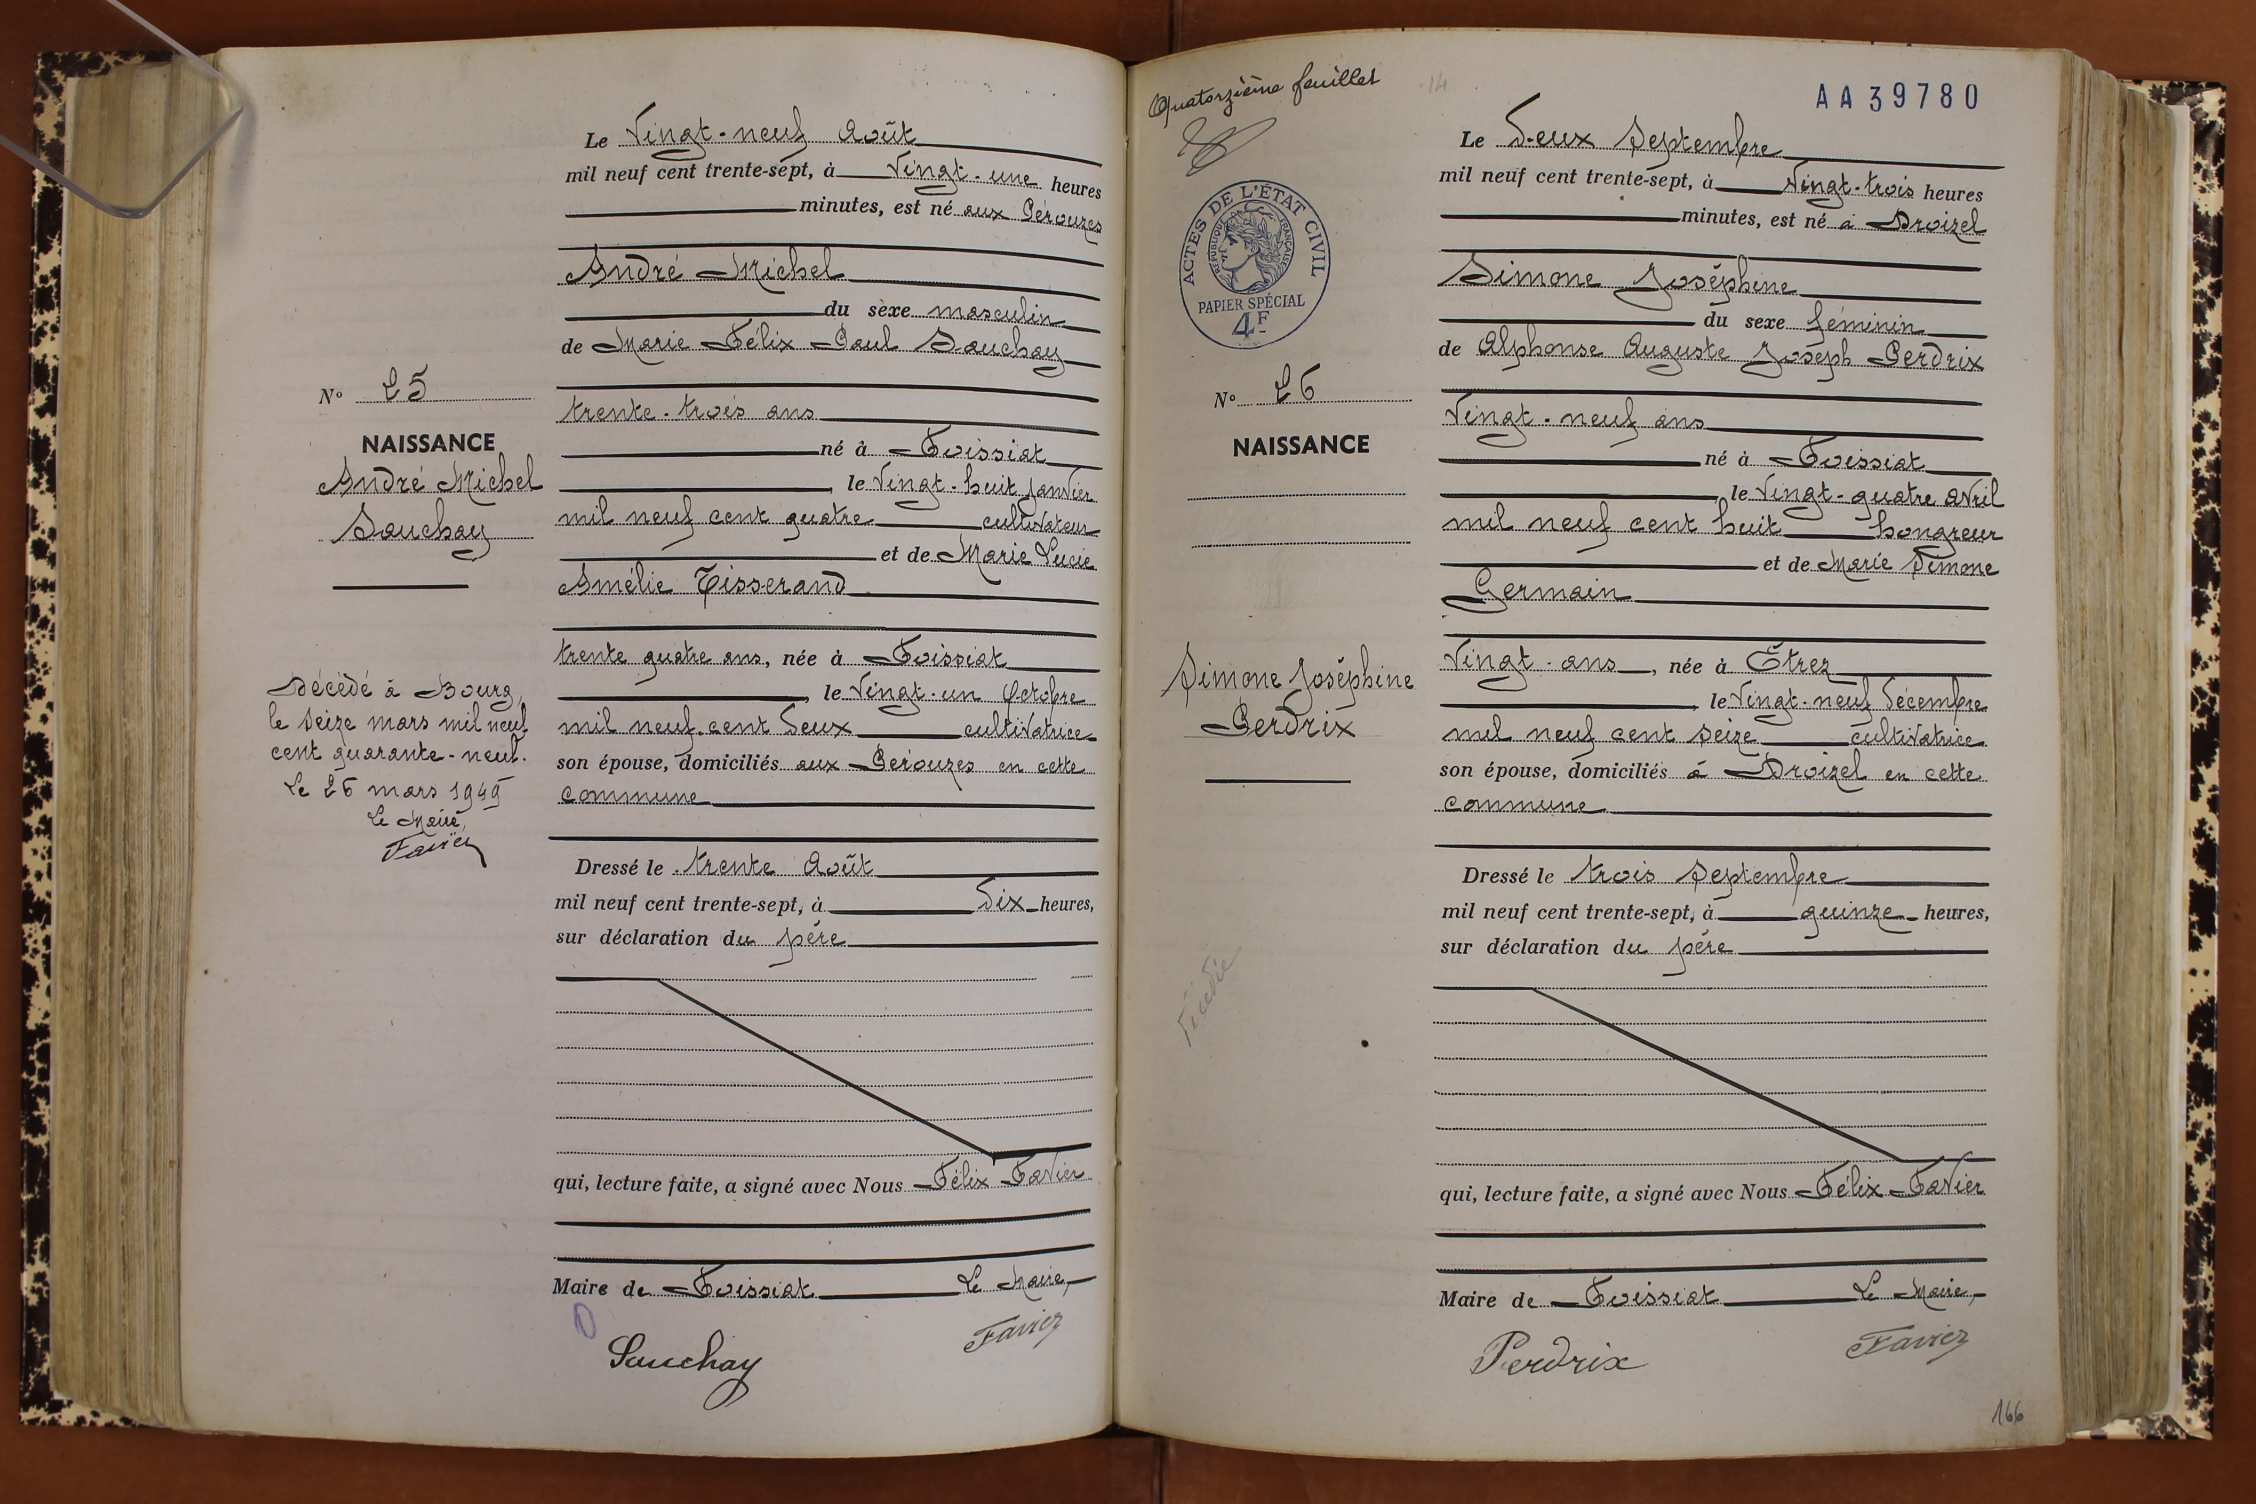 Le Vingt-neuf Août
mil neuf cent trente-sept, à Vingt-une heures
minutes, est né aux Pérouzes
André Michel
du sexe masculin
de Marie Félix Paul Sauchay
trente-trois ans
né à Foissiat
le Vingt-huit Janvier
mil neuf cent quatre cultivateur
et de Marie Lucie
Amélie Tisserand
trente quatre ans, née à Foissiat
le Vingt-un Octobre
mil neuf cent deux cultivatrice
son épouse, domiciliés aux Pérouzes en cette
commune
Dressé le trente Août
mil neuf cent trente-sept, à dix heures,
sur déclaration du père
qui, lecture faite, a signé avec Nous Félix Favier
Maire de Foissiat Le Maire,
Sauchay Favier
N° 25
NAISSANCE
André Michel
Sauchay
Décédé à Bourg,
le seize mars mil neuf
cent quarante-neuf.
Le 26 mars 1949
Le Maire,
Favier
Quatorzième feuillet
14
AA39780
ACTES DE L'ÉTAT CIVIL
RÉPUBLIQUE FRANÇAISE
PAPIER SPÉCIAL
4F
N° 26
NAISSANCE
Simone Joséphine
Perdrix
Le Deux Septembre
mil neuf cent trente-sept, à Vingt-trois heures
minutes, est né à Droizel
Simone Joséphine
du sexe féminin
de Alphonse Auguste Joseph Perdrix
Vingt-neuf ans
né à Foissiat
le Vingt-quatre Avril
mil neuf cent huit hongreur
et de Marie Simone
Germain
Vingt ans, née à Étrez
le Vingt-neuf Décembre
mil neuf cent seize cultivatrice
son épouse, domiciliés à Droizel en cette
commune
Dressé le trois Septembre
mil neuf cent trente-sept, à quinze heures,
sur déclaration du père
qui, lecture faite, a signé avec Nous Félix Favier
Maire de Foissiat Le Maire,
Perdrix Favier
166